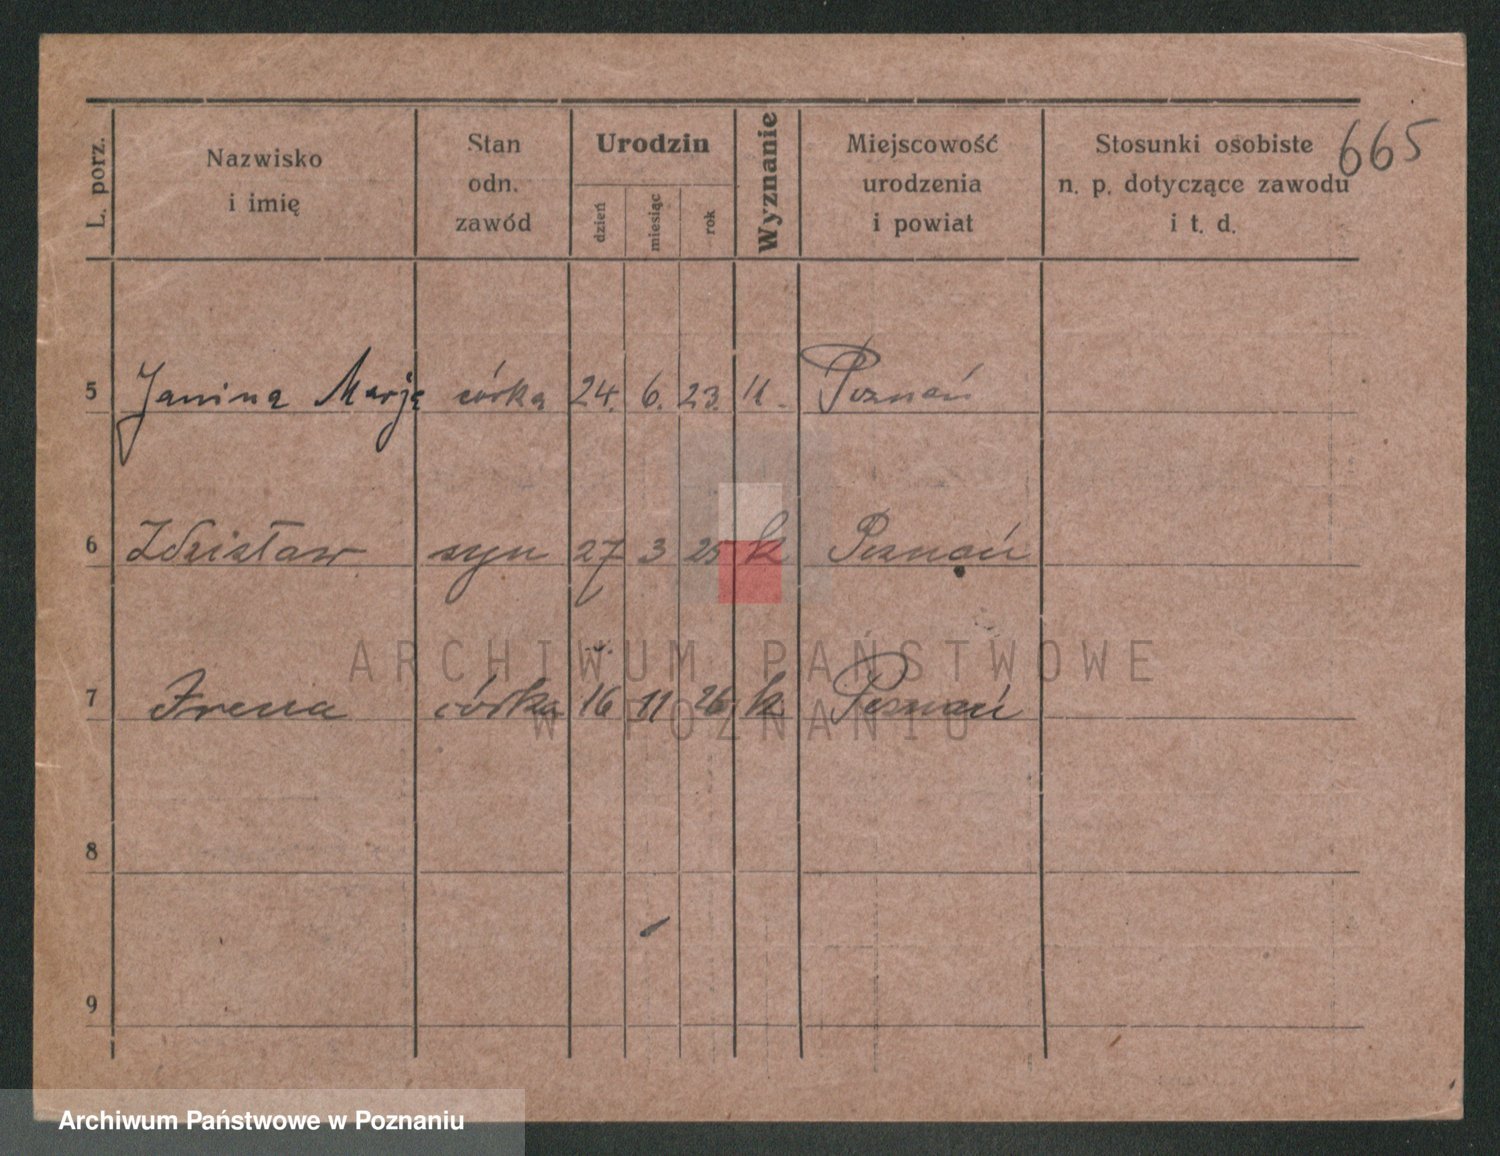 665
L. porz. Nazwisko i imię Stan odn. zawód Urodzin dzień miesiąc rok Wyznanie Miejscowość urodzenia i powiat Stosunki osobiste n. p. dotyczące zawodu i t. d.
5 Janina Marja córka 24. 6. 23. " Poznań
6 Zdzisław syn 27 3 25 k Poznań
7 Irena córka 16 11 26 k Poznań
8
9
ARCHIWUM PAŃSTWOWE
W POZNANIU
Archiwum Państwowe w Poznaniu